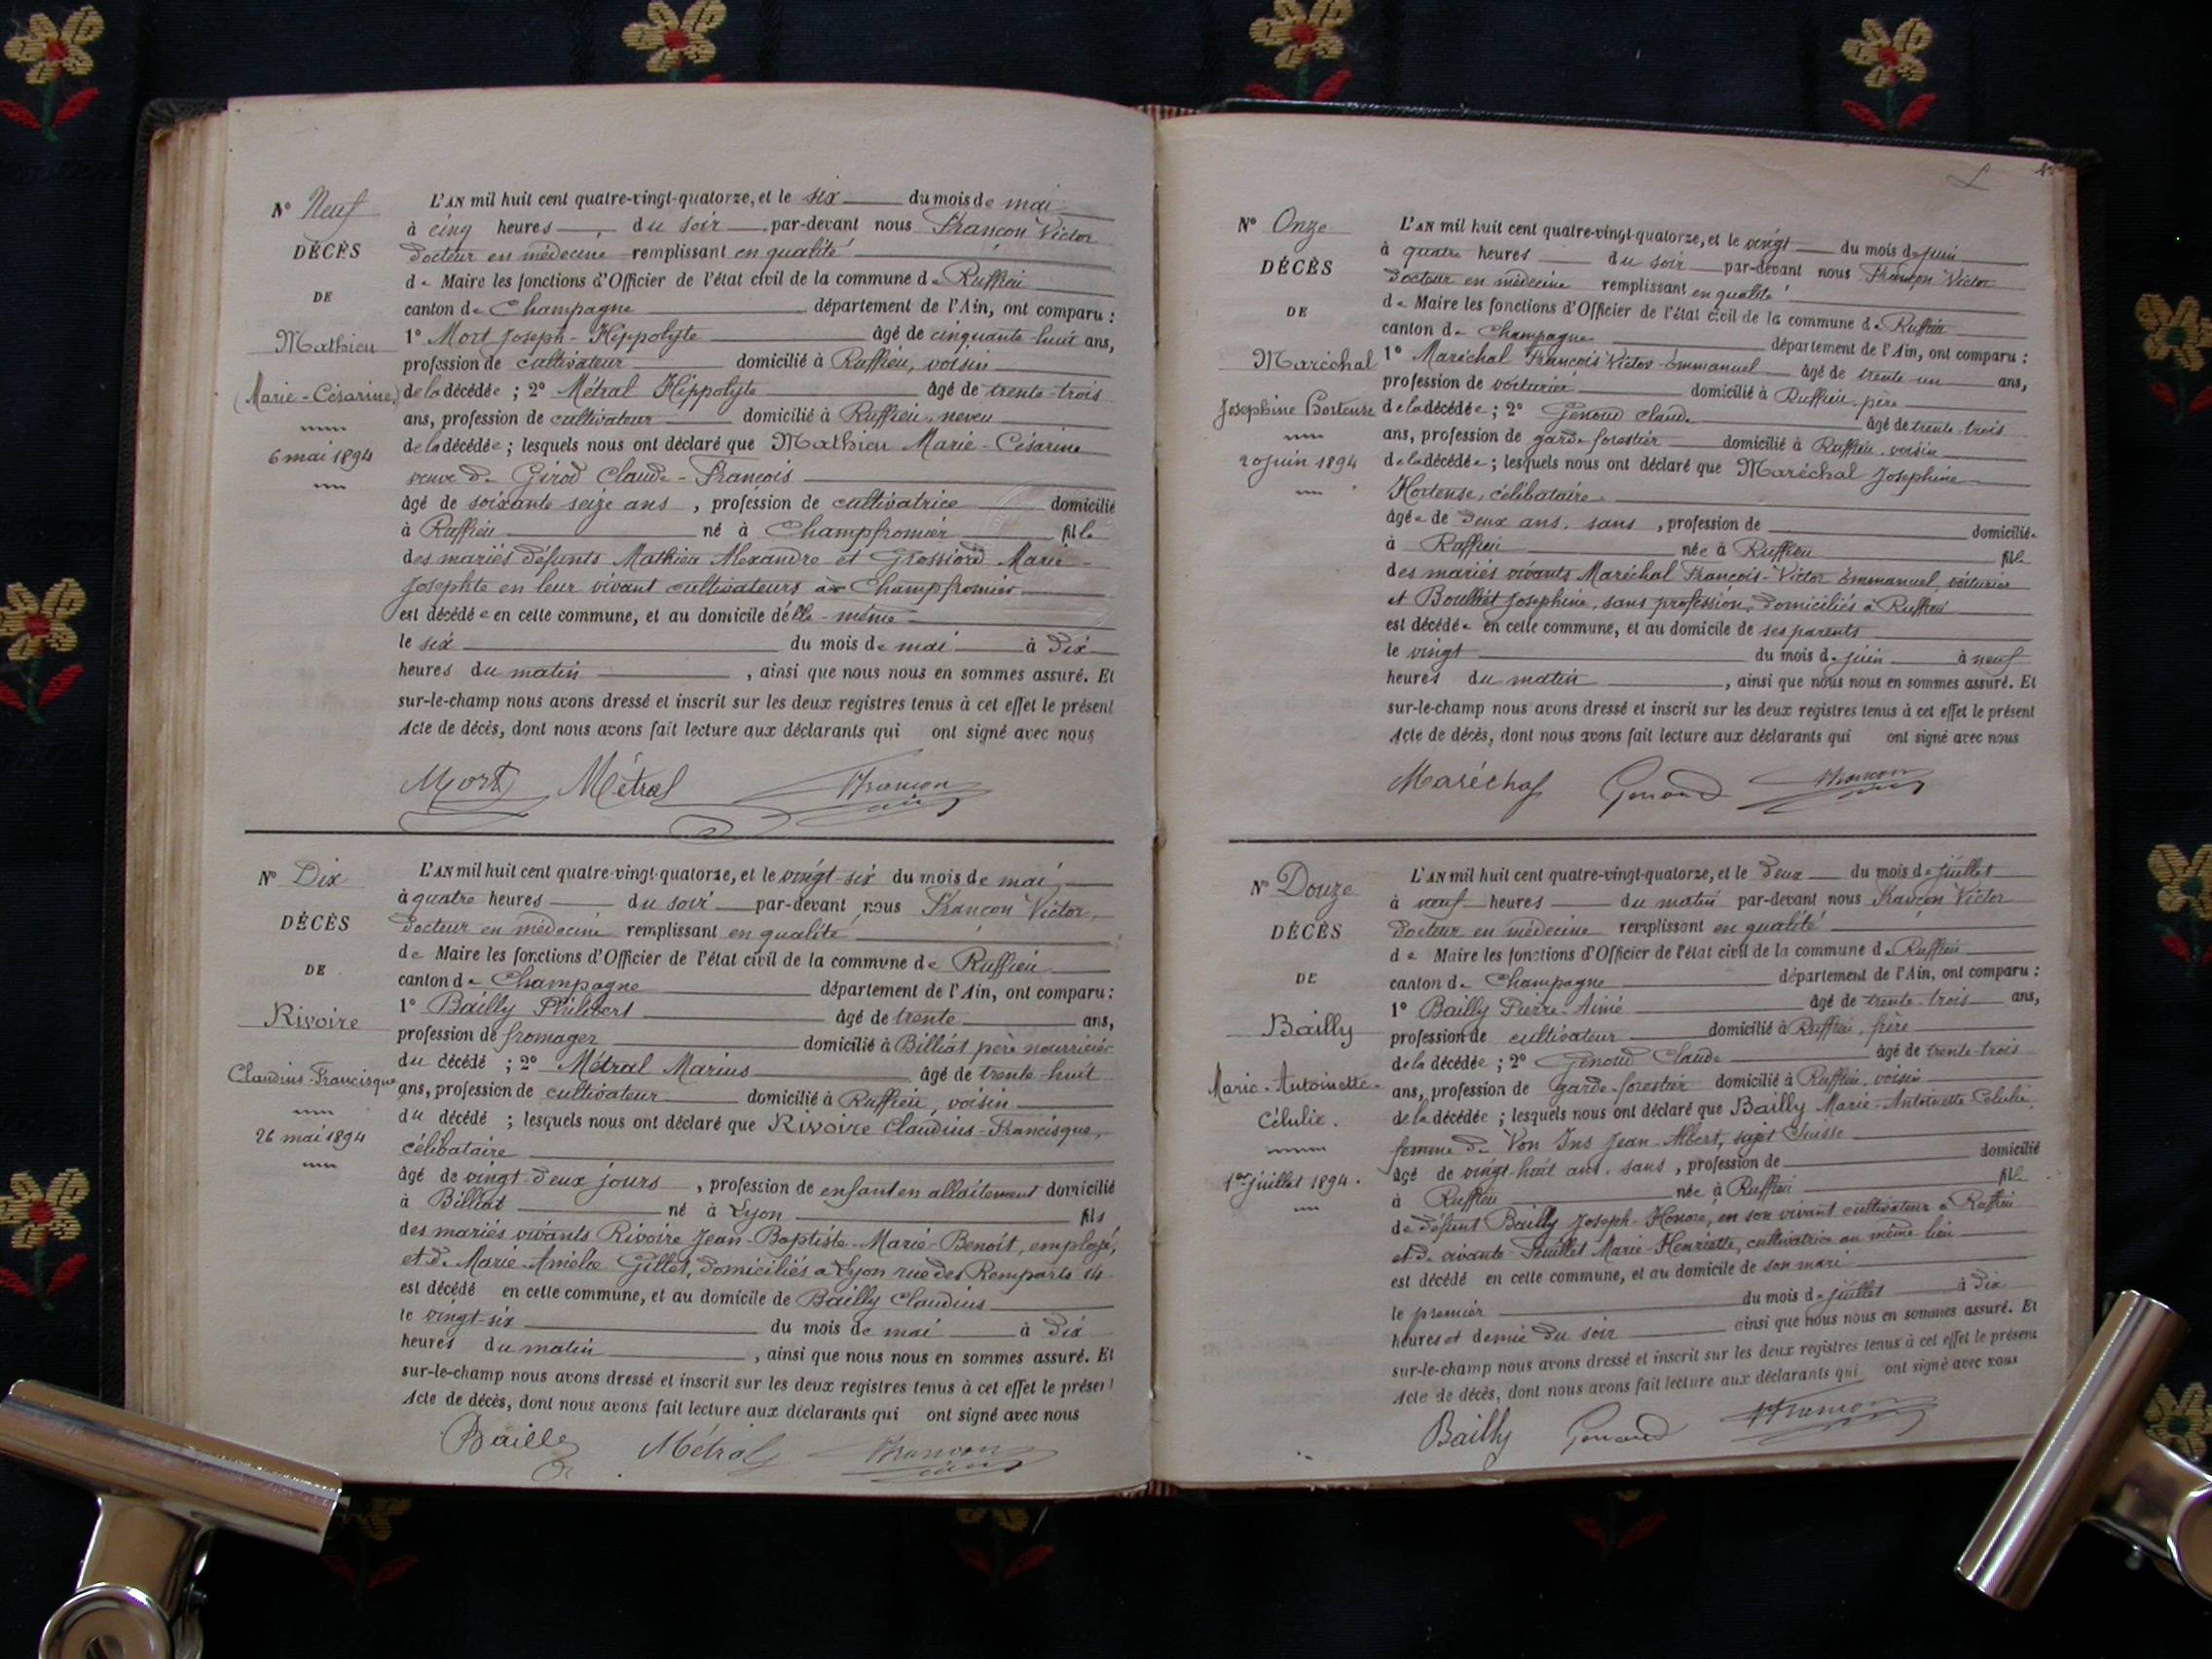 N° Neuf
DÉCÈS
DE
Mathieu
(Marie-Césarine)
6 mai 1894
L'AN mil huit cent quatre-vingt-quatorze, et le six du mois de mai
à cinq heures du soir par-devant nous Françon Victor
docteur en médecine remplissant en qualité
de Maire les fonctions d'Officier de l'état civil de la commune de Ruffieu
canton de Champagne département de l'Ain, ont comparu :
1° Mort Joseph-Hippolyte âgé de cinquante-huit ans,
profession de cultivateur domicilié à Ruffieu, voisin
de la décédée ; 2° Métral Hippolyte âgé de trente-trois
ans, profession de cultivateur domicilié à Ruffieu, neveu
de la décédée ; lesquels nous ont déclaré que Mathieu Marie-Césarine
veuve de Girod Claude-François
âgé de soixante seize ans , profession de cultivatrice domicilié
à Ruffieu né à Champfromier fille
des mariés défunts Mathieu Alexandre et Grossiord Marie-
Josephte en leur vivant cultivateurs à Champfromier
est décédée en cette commune, et au domicile d'elle-même
le six du mois de mai à dix
heures du matin , ainsi que nous nous en sommes assuré. Et
sur-le-champ nous avons dressé et inscrit sur les deux registres tenus à cet effet le présent
Acte de décès, dont nous avons fait lecture aux déclarants qui ont signé avec nous
Mort Métral Françon
N° Dix
DÉCÈS
DE
Rivoire
Claudius-Francisque
26 mai 1894
L'AN mil huit cent quatre-vingt-quatorze, et le vingt-six du mois de mai
à quatre heures du soir par-devant nous Françon Victor,
docteur en médecine remplissant en qualité
de Maire les fonctions d'Officier de l'état civil de la commune de Ruffieu
canton de Champagne département de l'Ain, ont comparu :
1° Bailly Philibert âgé de trente ans,
profession de fromager domicilié à Billiat père nourricier
du décédé ; 2° Métral Marius âgé de trente-huit
ans, profession de cultivateur domicilié à Ruffieu, voisin
du décédé ; lesquels nous ont déclaré que Rivoire Claudius-Francisque,
célibataire
âgé de vingt-deux jours , profession de enfant en allaitement domicilié
à Billiat né à Lyon fils
des mariés vivants Rivoire Jean-Baptiste-Marie-Benoît, employé,
et de Marie Amélie Gillet, domiciliés à Lyon rue des Remparts 14
est décédé en cette commune, et au domicile de Bailly Claudius
le vingt-six du mois de mai à dix
heures du matin , ainsi que nous nous en sommes assuré. Et
sur-le-champ nous avons dressé et inscrit sur les deux registres tenus à cet effet le présent
Acte de décès, dont nous avons fait lecture aux déclarants qui ont signé avec nous
Bailly Métral Françon
N° Onze
DÉCÈS
DE
Maréchal
Josephine Hortense
20 juin 1894
L'AN mil huit cent quatre-vingt-quatorze, et le vingt du mois de juin
à quatre heures du soir par-devant nous Françon Victor
docteur en médecine remplissant en qualité
de Maire les fonctions d'Officier de l'état civil de la commune de Ruffieu
canton de Champagne département de l'Ain, ont comparu :
1° Maréchal François Victor-Emmanuel âgé de trente un ans,
profession de voiturier domicilié à Ruffieu, père
de la décédée ; 2° Genoud Claude âgé de trente-trois
ans, profession de garde forestier domicilié à Ruffieu, voisin
de la décédée ; lesquels nous ont déclaré que Maréchal Josephine
Hortense, célibataire
âgée de deux ans. sans , profession de domiciliée
à Ruffieu née à Ruffieu fille
des mariés vivants Maréchal François-Victor Emmanuel, voiturier
et Boulliet Josephine, sans profession, domiciliés à Ruffieu
est décédée en cette commune, et au domicile de ses parents
le vingt du mois de juin à neuf
heures du matin , ainsi que nous nous en sommes assuré. Et
sur-le-champ nous avons dressé et inscrit sur les deux registres tenus à cet effet le présent
Acte de décès, dont nous avons fait lecture aux déclarants qui ont signé avec nous
Maréchal Genoud Françon
N° Douze
DÉCÈS
DE
Bailly
Marie-Antoinette-
Célulie.
1er juillet 1894.
L'AN mil huit cent quatre-vingt-quatorze, et le deux du mois de juillet
à neuf heures du matin par-devant nous Françon Victor
docteur en médecine remplissant en qualité
de Maire les fonctions d'Officier de l'état civil de la commune de Ruffieu
canton de Champagne département de l'Ain, ont comparu :
1° Bailly Pierre-Aimé âgé de trente-trois ans,
profession de cultivateur domicilié à Ruffieu, frère
de la décédée ; 2° Genoud Claude âgé de trente-trois
ans, profession de garde-forestier domicilié à Ruffieu, voisin
de la décédée ; lesquels nous ont déclaré que Bailly Marie-Antoinette Célulie
femme de Von Ins Jean-Albert, sujet Suisse
âgé de vingt-huit ans. sans , profession de domicilié
à Ruffieu née à Ruffieu fille
de défunt Bailly Joseph-Honoré, en son vivant cultivateur à Ruffieu
et de vivante Feuillet Marie-Henriette, cultivatrice au même lieu
est décédé en cette commune, et au domicile de son mari
le premier du mois de juillet à dix
heures et demie du soir ainsi que nous nous en sommes assuré. Et
sur-le-champ nous avons dressé et inscrit sur les deux registres tenus à cet effet le présent
Acte de décès, dont nous avons fait lecture aux déclarants qui ont signé avec nous
Bailly Genoud Françon